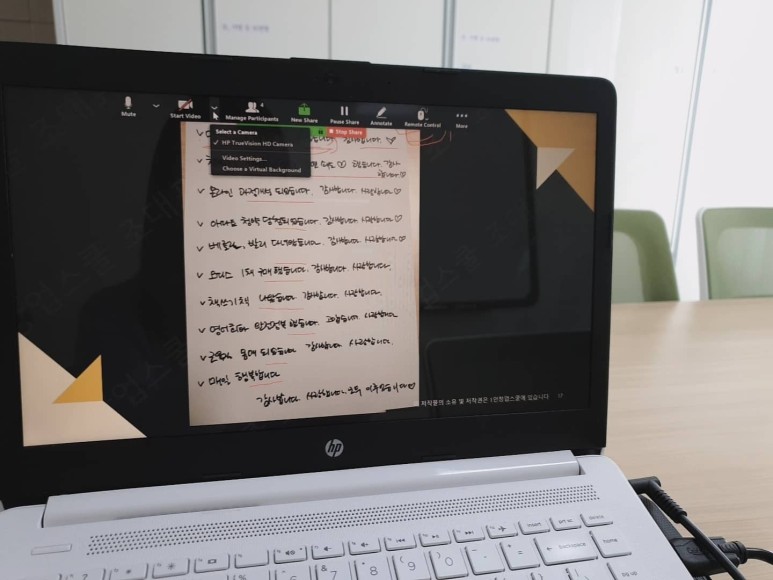 Mute
Start Video
Manage Participants
4
New Share
Pause Share
Annotate
Remote Control
More
Select a Camera
Stop Share
✓ HP TrueVision HD Camera
Video Settings...
Choose a Virtual Background
감사합니다 ♡
감사
합니다 ♡
✓ 온라인 과정개설 되었습니다. 감사합니다. 사랑합니다 ♡
✓ 아파트 청약 당첨되었습니다. 감사합니다. 사랑합니다 ♡
✓ 발리 다녀왔습니다. 감사합니다. 사랑합니다 ♡
✓ 오피스 1채 구매했습니다. 감사합니다. 사랑합니다.
✓ 책쓰기 책 나왔습니다 감사합니다. 사랑합니다.
✓ 영어회화 완전정복 했습니다. 고맙습니다. 사랑합니다
✓ 되었습니다 감사합니다 사랑합니다.
✓ 매일 행복합니다
감사합니다 사랑합니다. 모두 이루었습니다 ♡
저작물의 소유 및 저작권은 1인창업스쿨에 있습니다
17
hp
insert
prt sc
delete
backspace
home